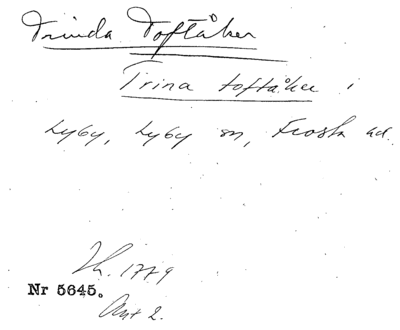 Trinda Toftåker
Trina toftåker i
Lyby, Lyby sn, Frosta hd.
1779
Nr 5645.
Akt 2.